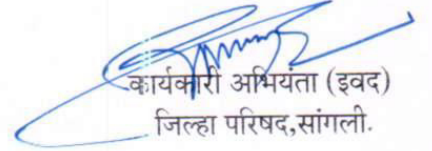 कार्यकारी अभियंता (इवद)
जिल्हा परिषद,सांगली.